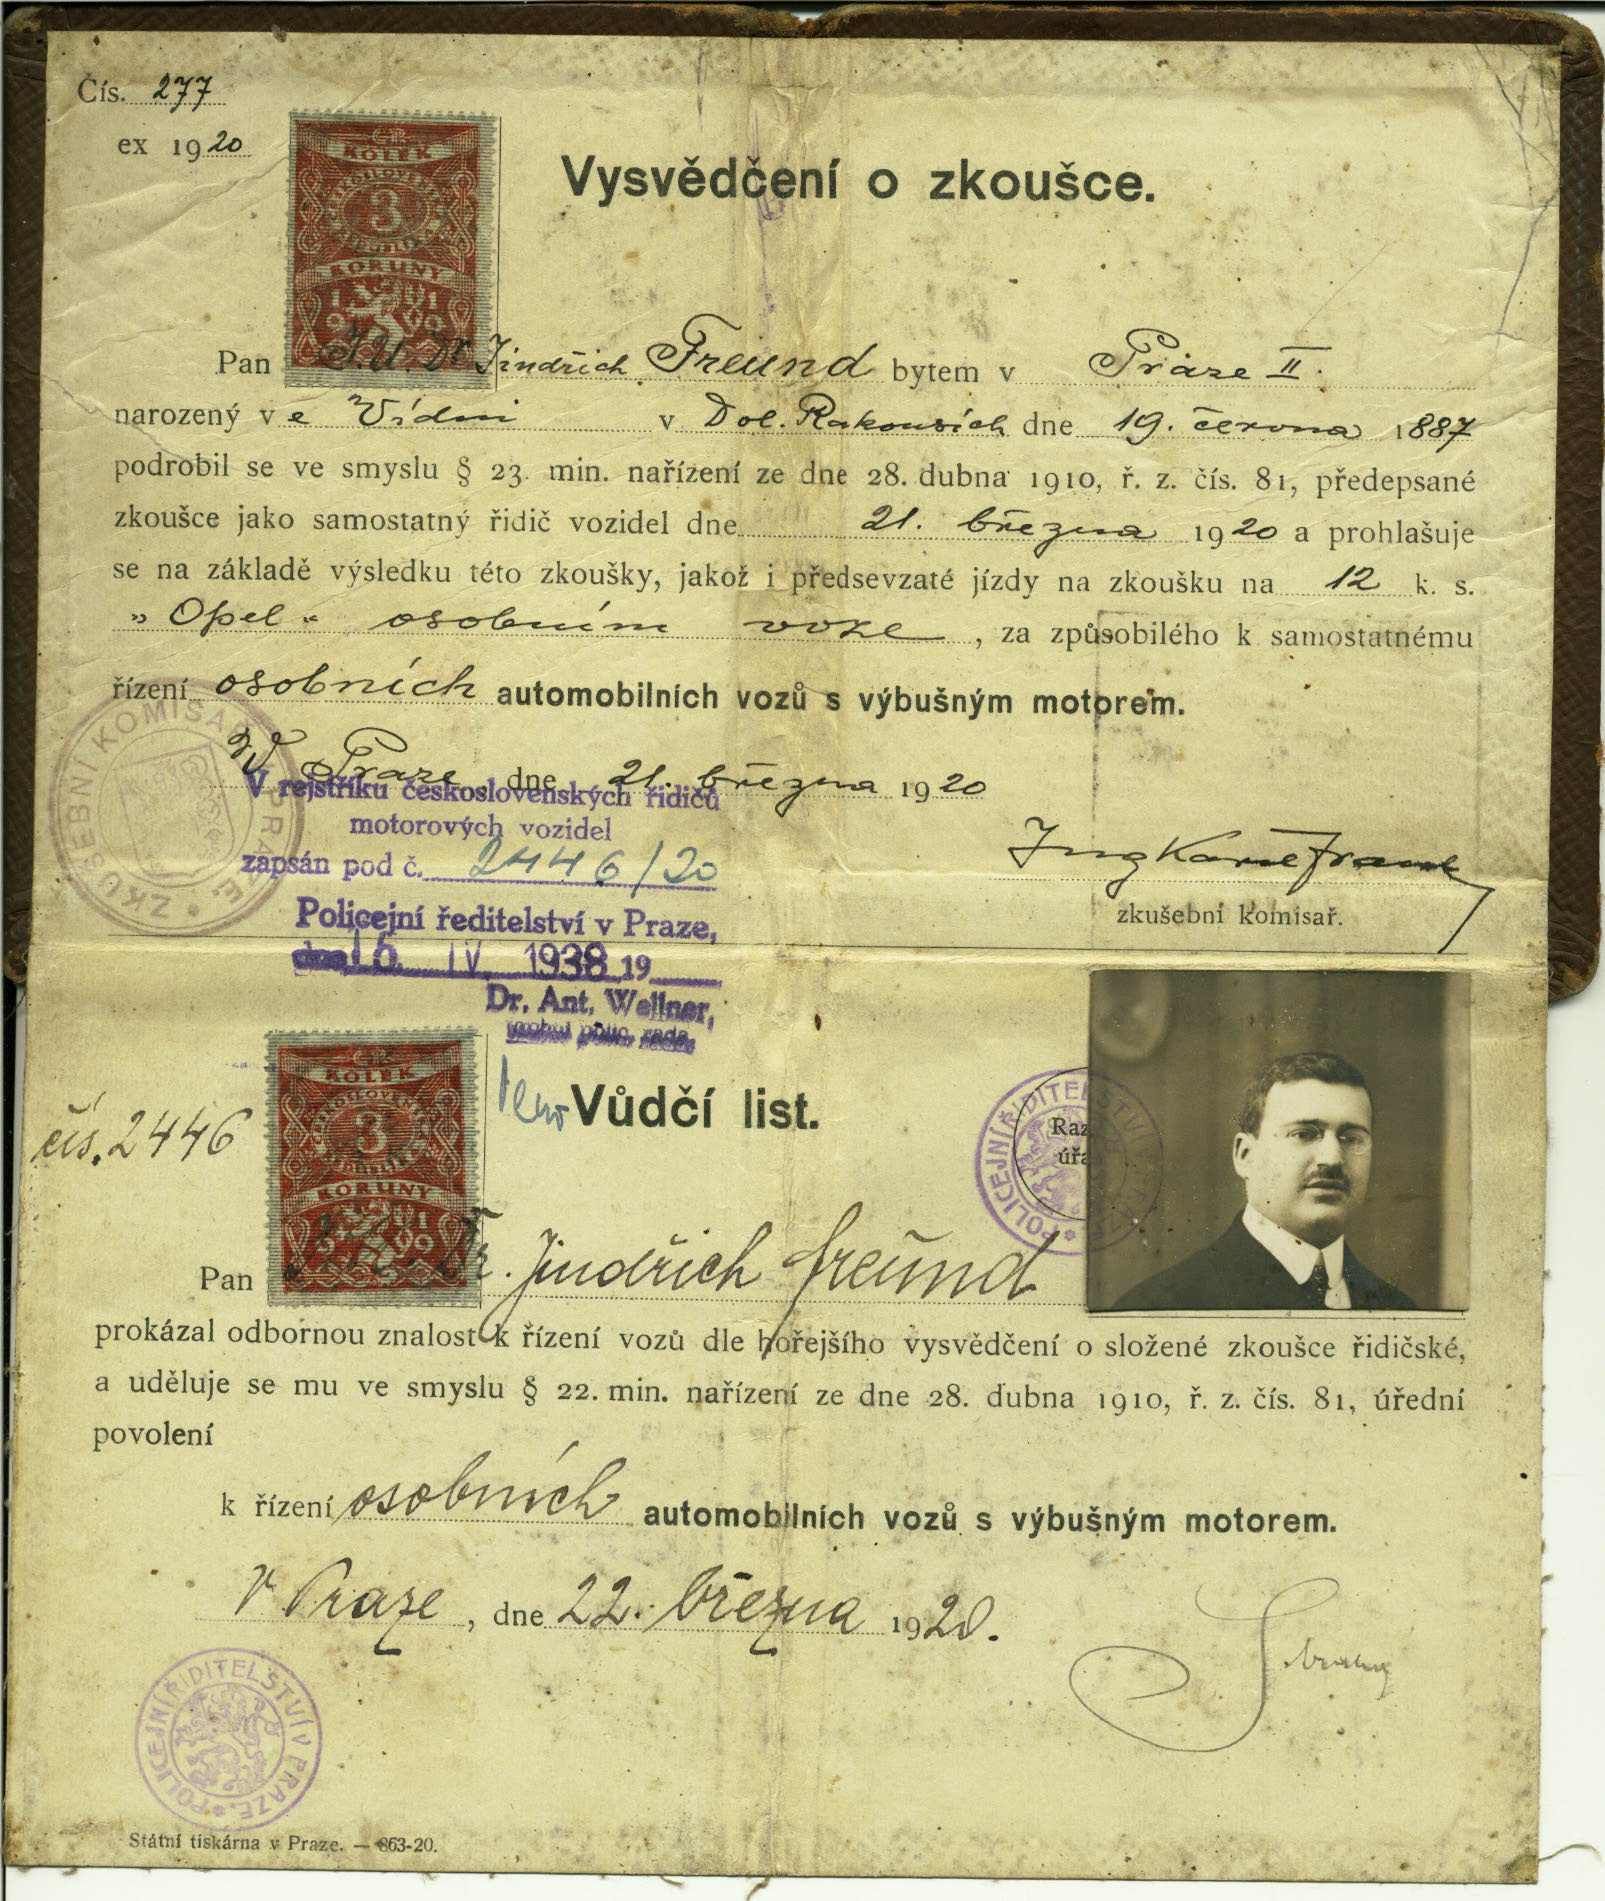 Čís. 277
ex 1920
ČR
KOLEK
3
KORUNY
1919
Vysvědčení o zkoušce.
Pan J.U.Dr Jindřich Freund bytem v Praze II.
narozený v e Vídni v Dol. Rakousích dne 19. června 1887
podrobil se ve smyslu § 23. min. nařízení ze dne 28. dubna 1910, ř. z. čís. 81, předepsané
zkoušce jako samostatný řidič vozidel dne 21. března 1920 a prohlašuje
se na základě výsledku této zkoušky, jakož i předsevzaté jízdy na zkoušku na 12 k. s.
„ Opel “ osobním voze, za způsobilého k samostatnému
řízení osobních automobilních vozů s výbušným motorem.
ZKUŠEBNÍ KOMISAŘ PRAZE
V Praze dne 21. března 1920
V rejstříku československých řidičů
motorových vozidel
zapsán pod č. 2446/20
Ing Karel
zkušební komisař.
Policejní ředitelství v Praze,
dne 15. IV. 1938 19
Dr. Ant. Wellner,
rada
ČR
KOLEK
3
KORUNY
1919
Vůdčí list.
čís. 2446
Raz
úřa
POLICEJNÍ ŘIDITELSTVÍ V PRAZE
Pan J.U.Dr. Jindřich Freund
prokázal odbornou znalost k řízení vozů dle hořejšího vysvědčení o složené zkoušce řidičské,
a uděluje se mu ve smyslu § 22. min. nařízení ze dne 28. dubna 1910, ř. z. čís. 81, úřední
povolení
k řízení osobních automobilních vozů s výbušným motorem.
V Praze, dne 22. března 1920.
POLICEJNÍ ŘIDITELSTVÍ V PRAZE
Státní tiskárna v Praze. — 863-20.